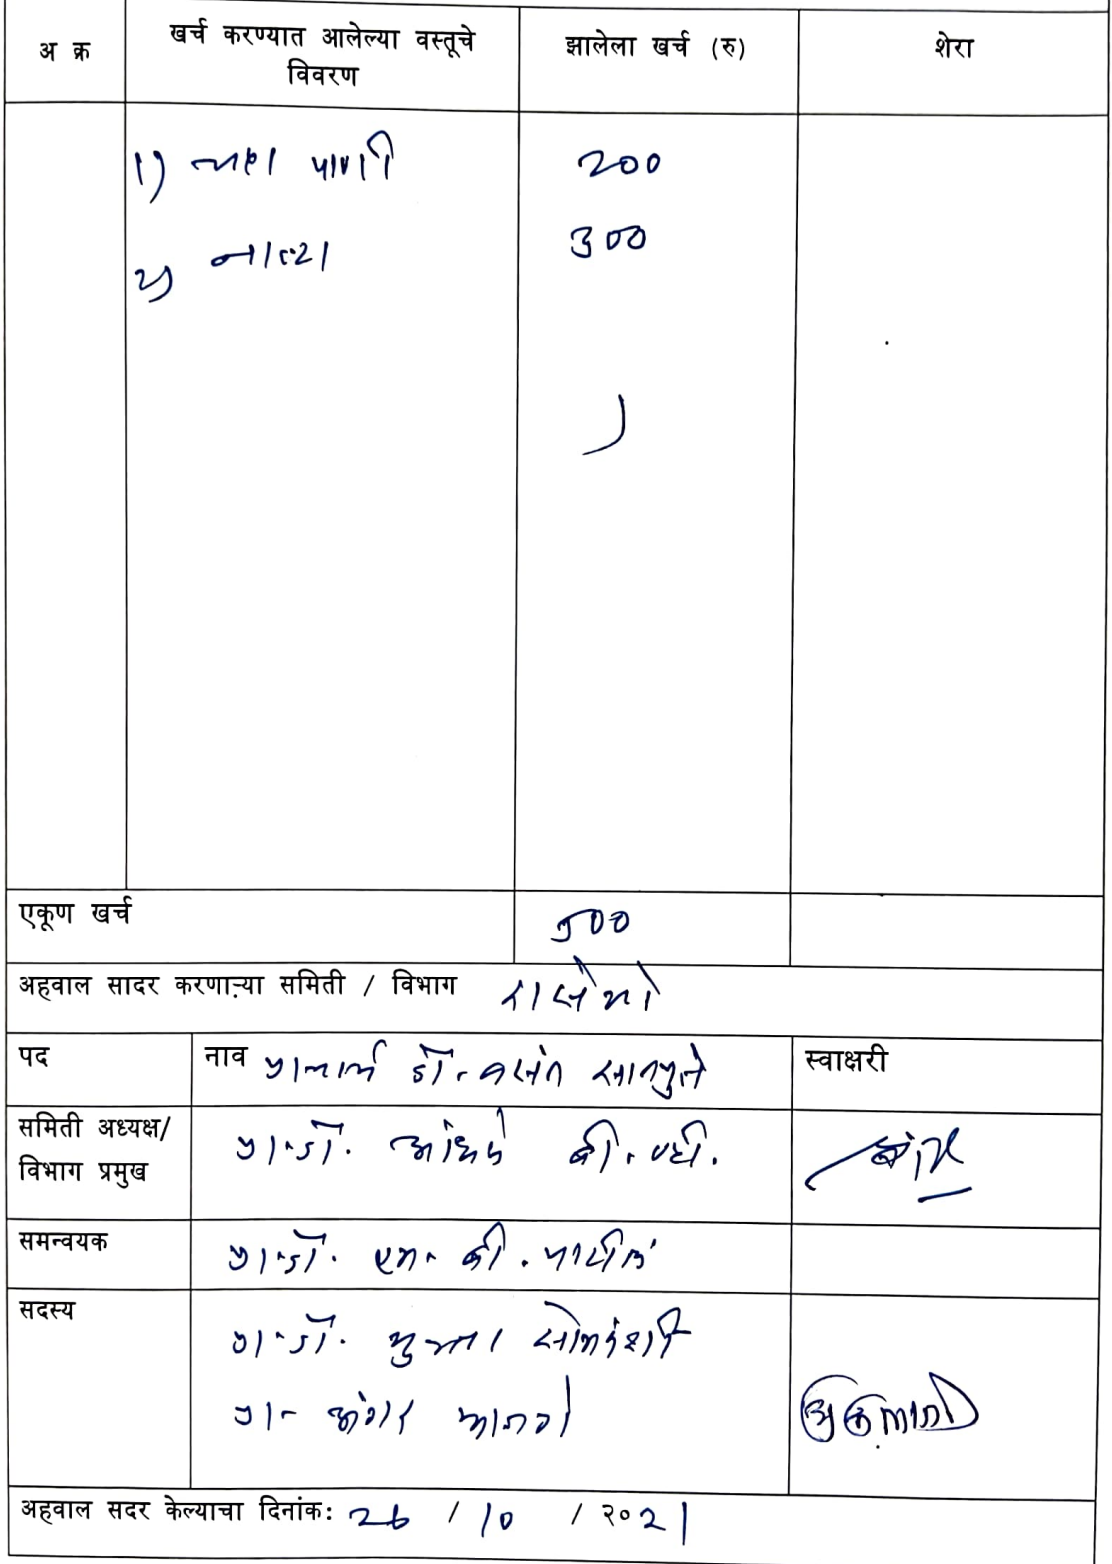 अ क्र
खर्च करण्यात आलेल्या वस्तूचे
विवरण
झालेला खर्च (रु)
शेरा
1) चहा पाणी 200
2) नाश्ता 300
एकूण खर्च 500
अहवाल सादर करणाऱ्या समिती / विभाग रासेयो
पद
नाव प्राचार्य डॉ. वसंत सातपुते
स्वाक्षरी
समिती अध्यक्ष/
विभाग प्रमुख
प्रा.डॉ. बी. व्ही.
समन्वयक
प्रा.डॉ. एम. बी. पाटील
सदस्य
प्रा.डॉ. मुक्ता सोमवंशी
प्रा.
अहवाल सदर केल्याचा दिनांक: 26 / 10 / २०21